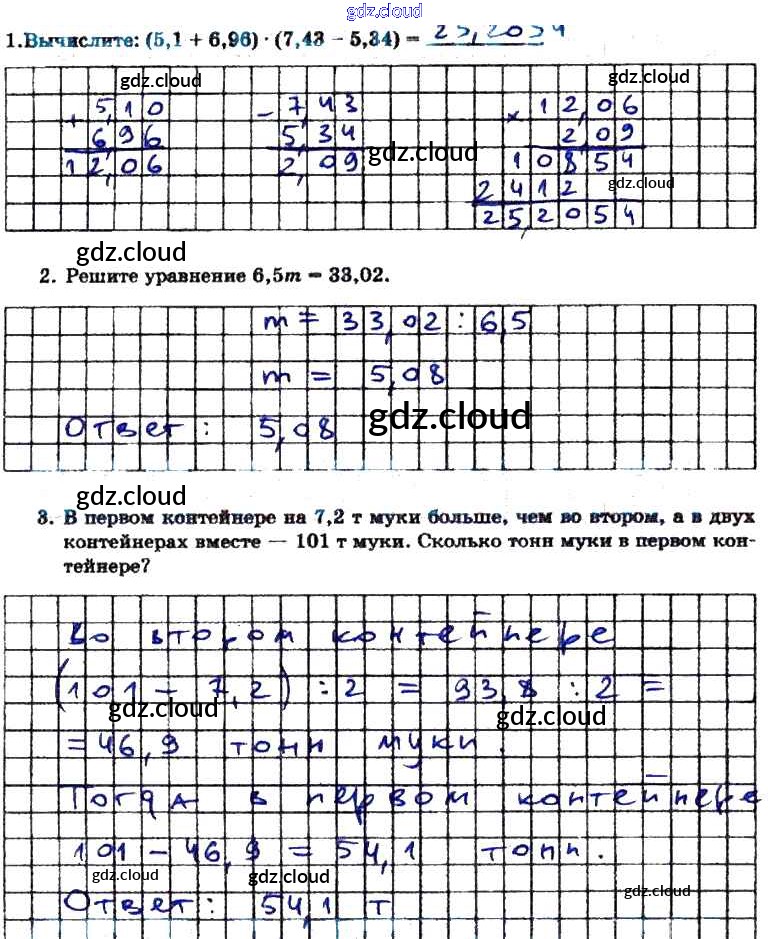 gdz.cloud
1.Вычислите: (5,1 + 6,96) · (7,43 − 5,34) = 25,2054
gdz.cloud gdz.cloud
+ 5,10 − 7,43 × 12,06
6,96 5,34 2,09
12,06 2,09 gdz.cloud 10854
2412 gdz.cloud
25,2054
gdz.cloud
2. Решите уравнение 6,5m = 33,02.
m = 33,02 : 6,5
m = 5,08
Ответ: 5,08 gdz.cloud
gdz.cloud
3. В первом контейнере на 7,2 т муки больше, чем во втором, а в двух
контейнерах вместе — 101 т муки. Сколько тонн муки в первом кон-
тейнере?
Во втором контейнере
(101 − 7,2) : 2 = 93,8 : 2 =
gdz.cloud gdz.cloud
= 46,9 тонн муки.
Тогда в первом контейнере
101 − 46,9 = 54,1 тонн.
gdz.cloud gdz.cloud
Ответ: 54,1 т gdz.cloud